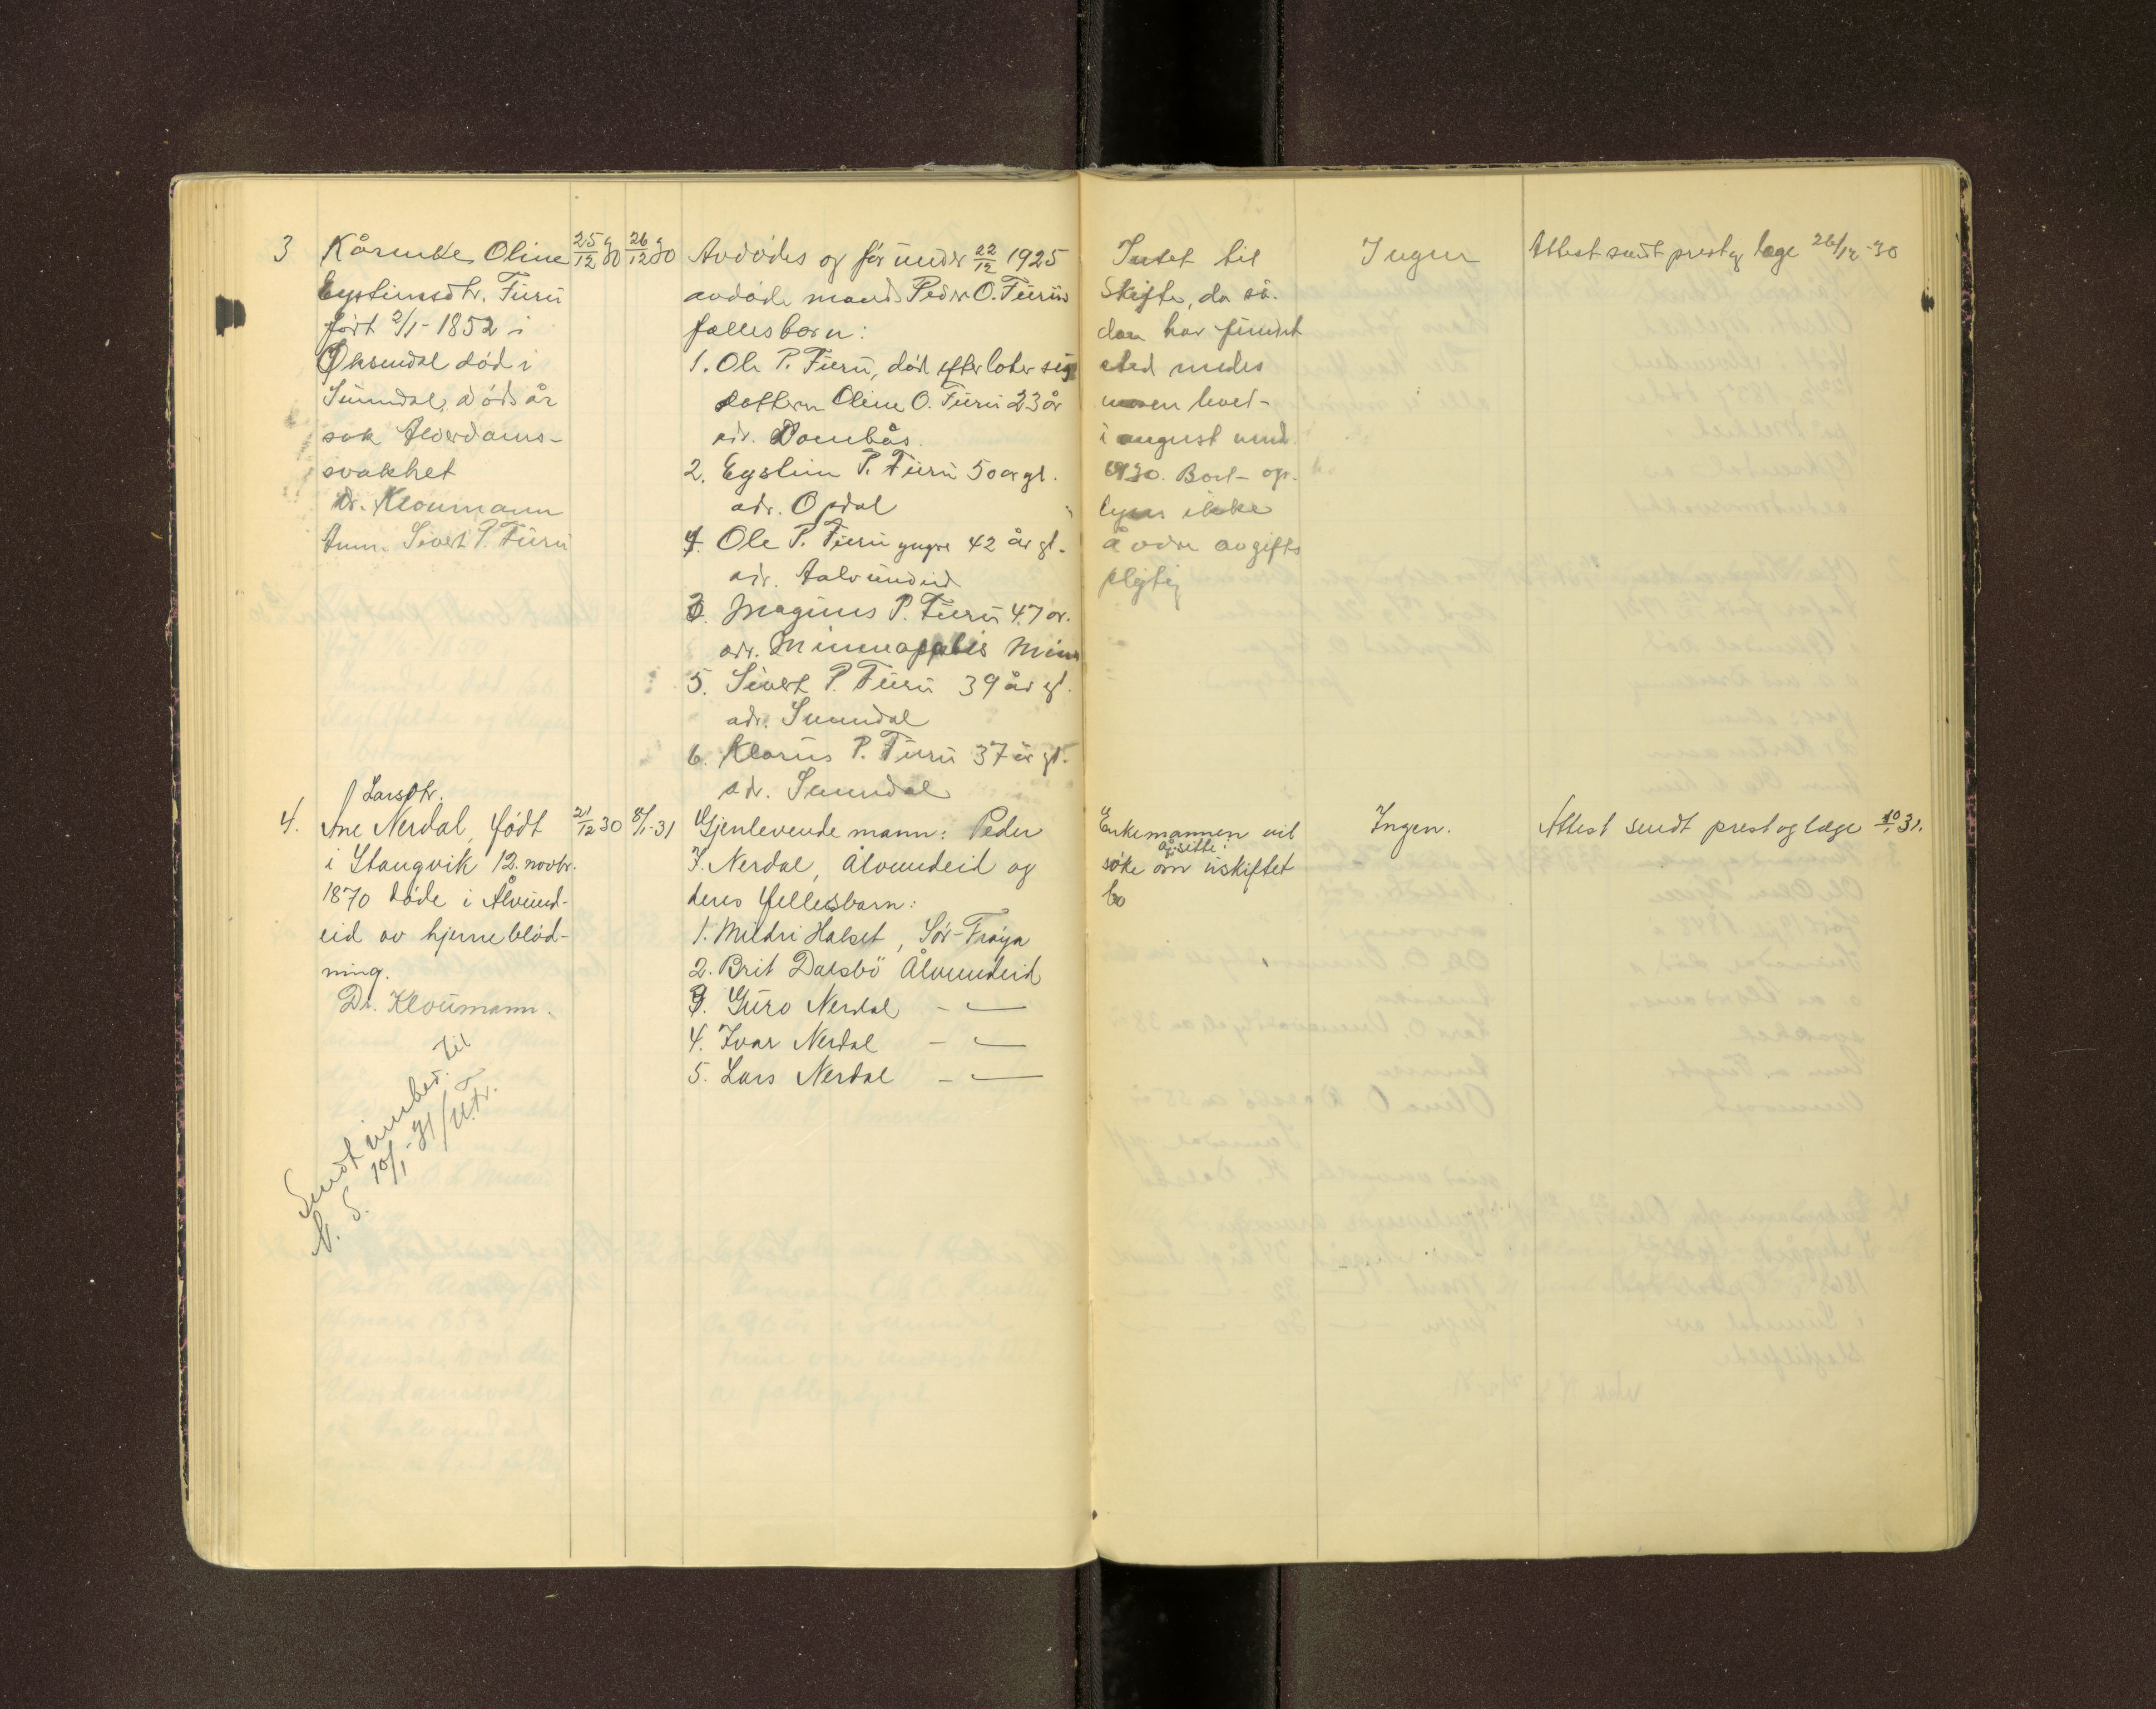 3
Kårenke Oline
Eysteinsdtr. Furu
født 2/1-1852 i
Øksendal død i
Sunndal, dødsår
sak Alderdoms-
svakhet
Dr. Kloumann
Anm. Sivert P. Furu
25/12 30
26/12 30
Avdødes og før under 22/12 1925
avdøde mand Peder O. Furus
fællesbarn:
1. Ole P. Furu, død efterlater sig
datteren Oline O. Furu 23 år
adr. Dombås.
2. Eystein P. Furu 50 år gl.
adr. Opdal
4. Ole P. Furu yngre 42 år gl.
adr. Aalvundeid
3. Magnus P. Furu 47 år.
adr. Minneapolis Minn
5. Sivert P. Furu 39 år gl.
adr. Sunndal
6. Klarus P. Furu 37 år gl.
adr. Sunndal
Intet til
Skifte, da så-
dan har fundet
sted medes
i august mnd.
1930. Boet op-
lyses ikke
å være avgifts
pligtig
Ingen
Attest sendt prest og læge 26/12-30
4.
Larsdtr.
Ane Nerdal, født
i Stangvik 12. novbr.
1870 døde i Ålvund-
eid av hjerneblød-
ning.
Dr. Kloumann.
Sendt innber. til
N. S. 10/1-31/U.Tr.
21/12 30
8/1-31
Gjenlevende mann: Peder
I. Nerdal, Ålvundeid og
deres fellesbarn:
1. Mildri Halset, Sør-Frøya
2. Brit Dalsbö Ålvundeid
3. Guro Nerdal - —
4. Ivar Nerdal - —
5. Lars Nerdal - —
Enkemannen vil
å sitte i
søke om uskiftet
bo
Ingen.
Attest sendt prest og læge 10/1 31.